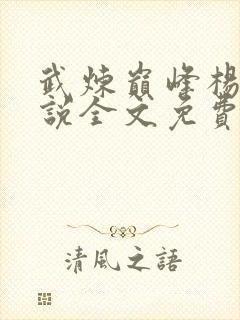 武煉巔峰楊
說全文免費
清風之語